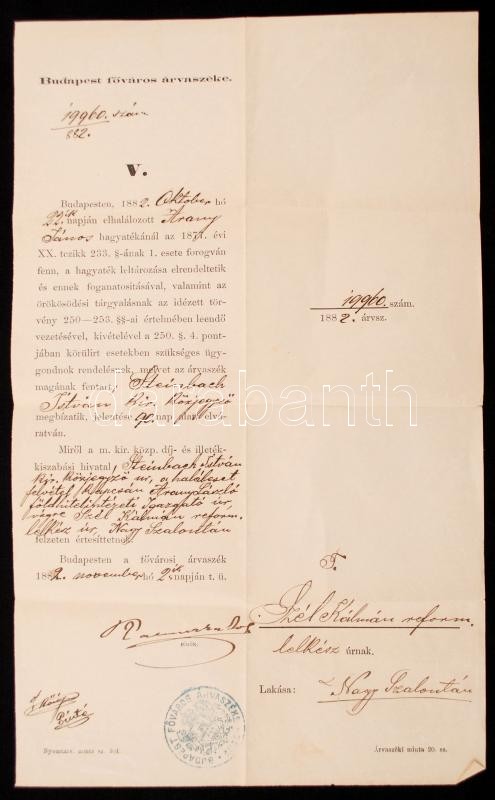 Budapest főváros árvaszéke.
19960. szám
882.
V.
Budapesten, 1882. Október hó
22ik napján elhalálozott Arany
János hagyatékánál az 1877. évi
XX. tczikk 233. §-ának 1. esete forogván
fenn, a hagyaték leltározása elrendeltetik
és ennek foganatosításával, valamint az
örökösödési tárgyalásnak az idézett tör-
vény 250—253. §§-ai értelmében leendő
vezetésével, kivételével a 250. §. 4. pont-
jában körülirt esetekben szükséges ügy-
gondnok rendelésnek, melyet az árvaszék
magának fentart, Steinbach
István kir. Közjegyző
megbizatik, jelentése 90 nap alatt elvá-
ratván.
Miről a m. kir. közp. díj- és illeték-
kiszabási hivatal, Steinbach István
kir. Közjegyző úr, a haláleset
felvétel kapcsán Arany László
földhitelintézeti Igazgató úr,
Szél Kálmán reform.
lelkész úr, Nagy Szalontán
felzeten értesíttetnek.
Budapesten a fővárosi árvaszék
1882. november hó 2ik napján t. ü.
Elnök.
BUDAPEST FŐVÁROS ÁRVASZÉKE
Nyomtatv. minta sz.
19960. szám.
1882. árvsz.
T.
Szél Kálmán reform.
lelkész úrnak.
Lakása: Nagy Szalontán
Árvaszéki minta 20. sz.
darabanth